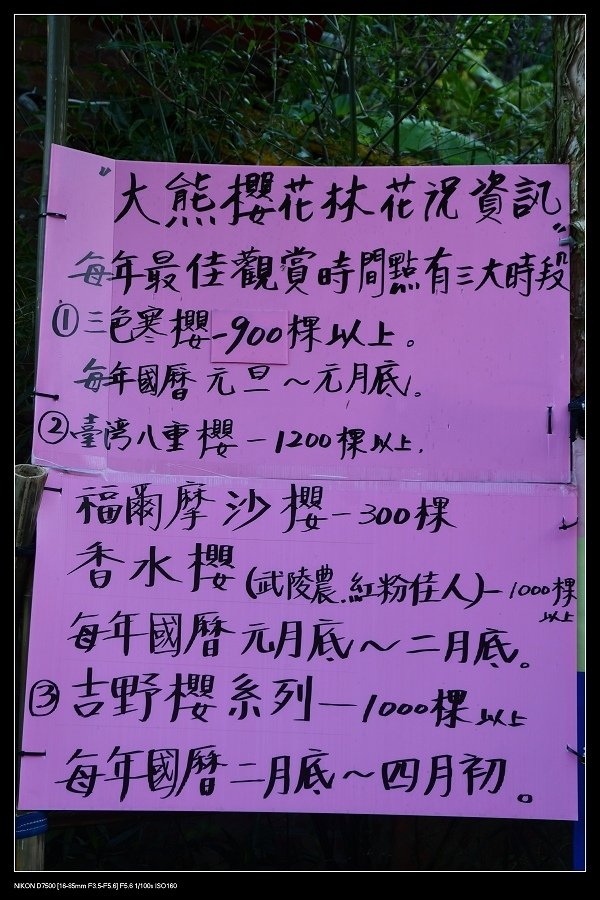 "大熊櫻花林花況資訊"
每年最佳觀賞時間點有三大時段
①三色寒櫻-900棵以上。
每年國曆元旦～元月底。
②臺灣八重櫻－1200棵以上.
福爾摩沙櫻－300棵
香水櫻(武陵農.紅粉佳人)－1000棵以上
每年國曆元月底～二月底。
③吉野櫻系列－1000棵以上
每年國曆二月底～四月初。
NIKON D7500 [16-85mm F3.5-F5.6] F5.6 1/100s ISO160